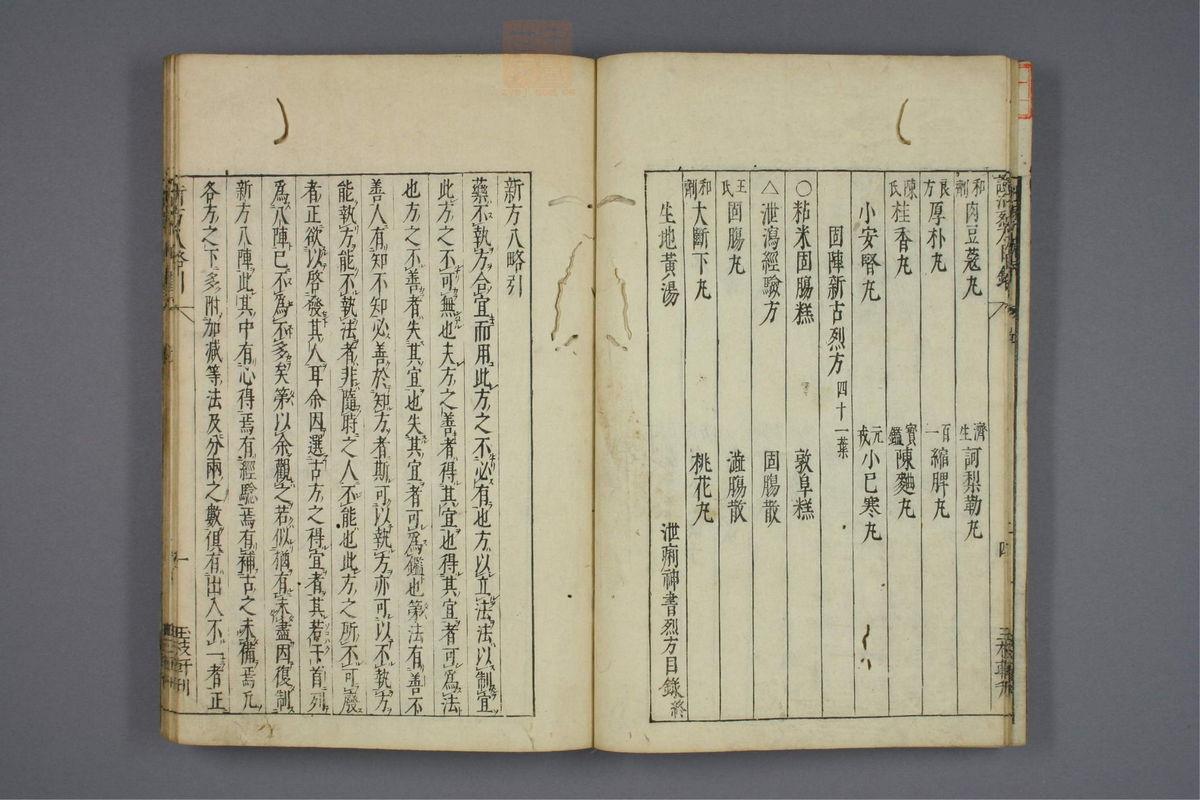 和劑 肉豆蔻丸 濟生 訶梨勒丸
良方 厚朴丸 百一 縮脾丸
陳氏 桂香丸 寶鑑 陳麯丸
小安腎丸 元戎 小已寒丸
固陣新古烈方 四十一葉
○粘米固腸糕 敦阜糕
△泄瀉經驗方 固腸散
王氏 固腸丸 澁腸散
和劑 大斷下丸 桃花丸
生地黃湯 泄痢神書烈方目錄終
新方八略引
藥不執方合宜而用此方之不必有也方以立法法以制宜
此方之不可無也夫方之善者得其宜也得其宜者可為法
也方之不善者失其宜也失其宜者可為鑑也第法有善不
善人有知不知必善於知方者斯可以執方亦可以不執方
能執方能不執法者非隨時之人不能也此方之所不可廢
者正欲以啓發其人耳余因選古方之得宜者其若干首列
為八陣已不為不多矣第以余觀之若似猶有未盡因復制
新方八陣此其中有心得焉有經驗焉有補古之未備焉凡
各方之下多附加減等法及分兩之數俱有出入不一者正
新方八略引
一